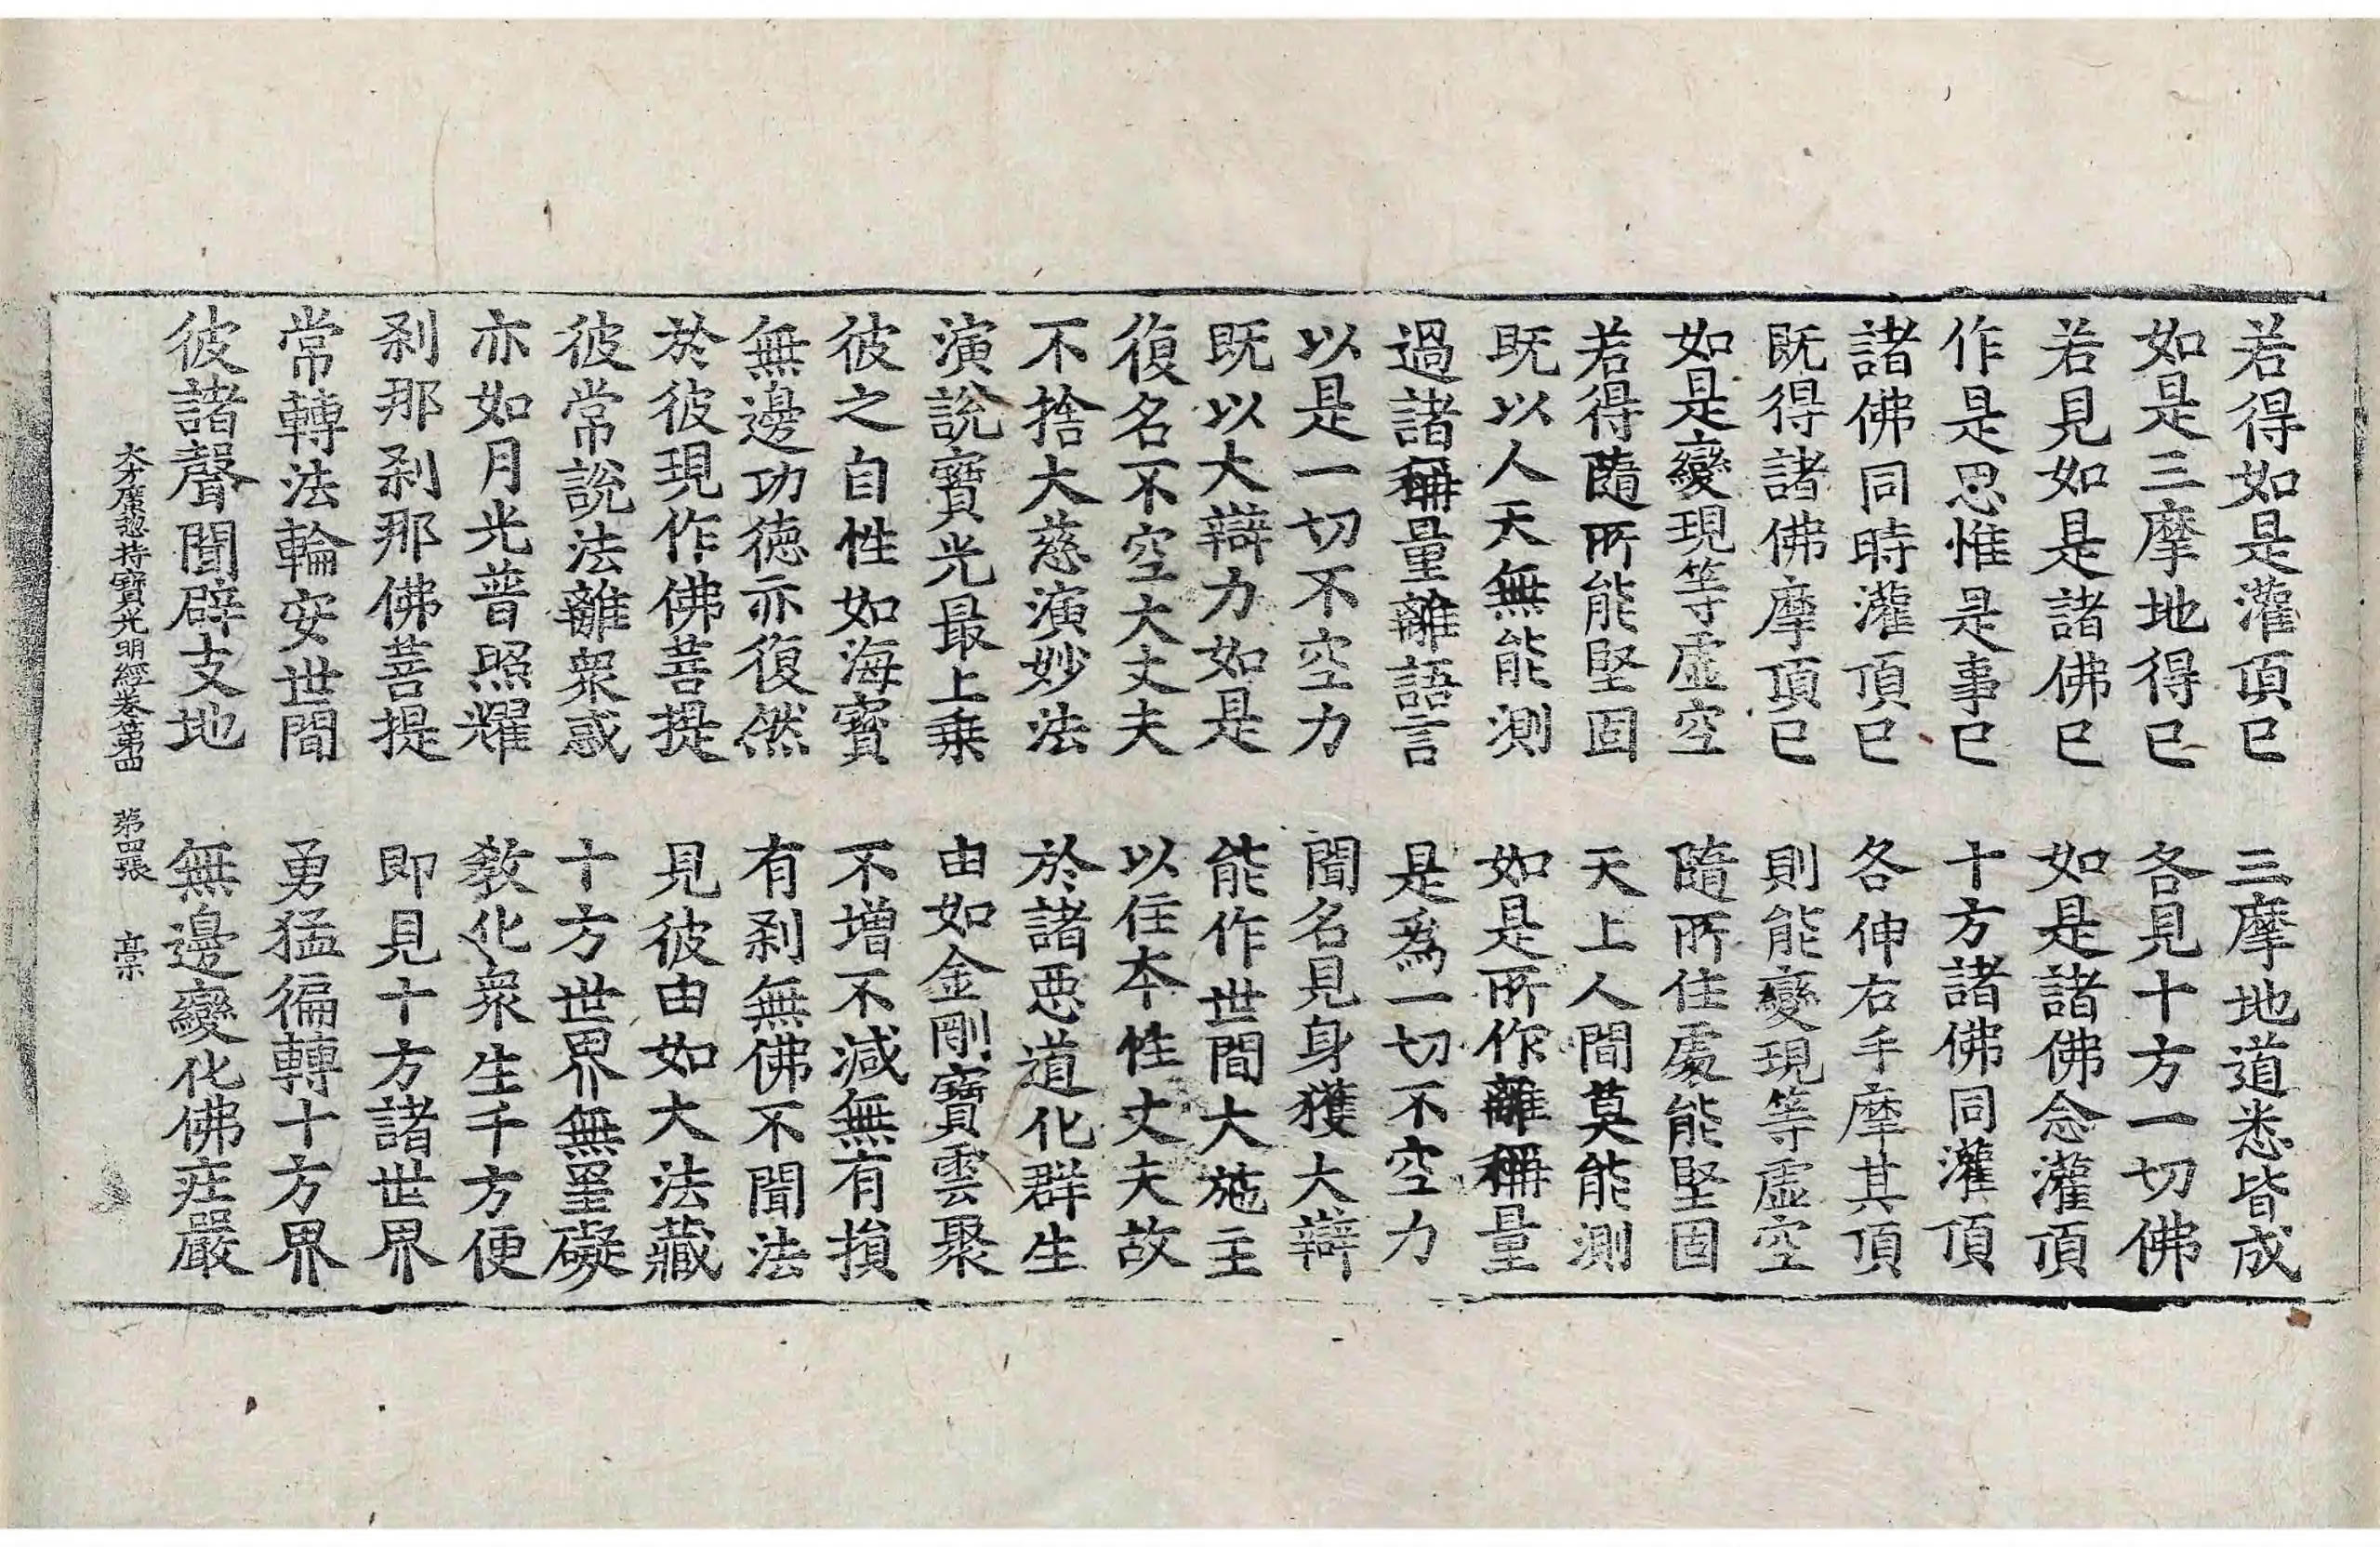 若得如是灌頂已　三摩地道悉皆成
如是三摩地得已　各見十方一切佛
若見如是諸佛已　如是諸佛念灌頂
作是思惟是事已　十方諸佛同灌頂
諸佛同時灌頂已　各伸右手摩其頂
既得諸佛摩頂已　則能變現等虛空
如是變現等虛空　隨所住處能堅固
若得隨所能堅固　天上人間莫能測
既以人天無能測　如是所作離稱量
過諸稱量離語言　是爲一切不空力
以是一切不空力　聞名見身獲大辯
既以大辯力如是　能作世間大施主
復名不空大丈夫　以住本性丈夫故
不捨大慈演妙法　於諸惡道化群生
演說寶光最上乗　由如金剛寶雲聚
彼之自性如海寶　不增不減無有損
無邊功德亦復然　有刹無佛不聞法
於彼現作佛菩提　見彼由如大法藏
彼常說法離衆惑　十方世界無罣礙
亦如月光普照耀　教化衆生千方便
刹那刹那佛菩提　即見十方諸世界
常轉法輪安世間　勇猛徧轉十方界
彼諸聲聞辟支地　無邊變化佛莊嚴
大方廣摠持寶光明經卷第四　第四張　高宗